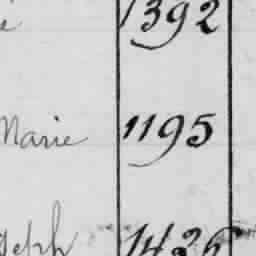 1392
Marie 1195
1426